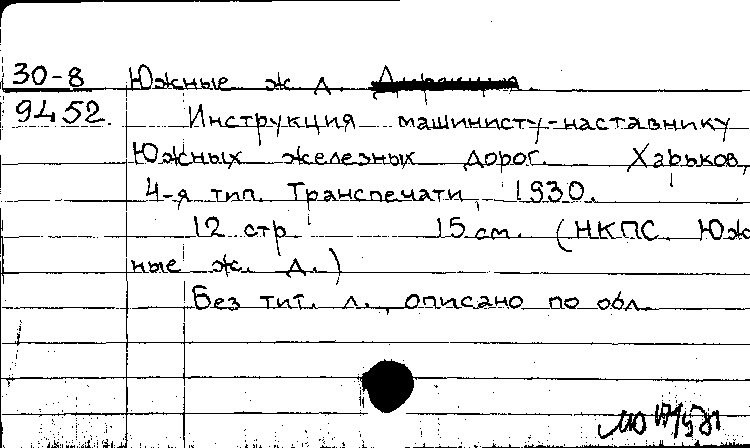 30-8 Южные ж. д. Дирекция.
9452. Инструкция машинисту-наставнику
Южных железных дорог. Харьков,
4-я тип. Транспечати, 1930.
12 стр. 15 см. (НКПС. Юж
ные ж. д.)
Без тит. л., описано по обл.